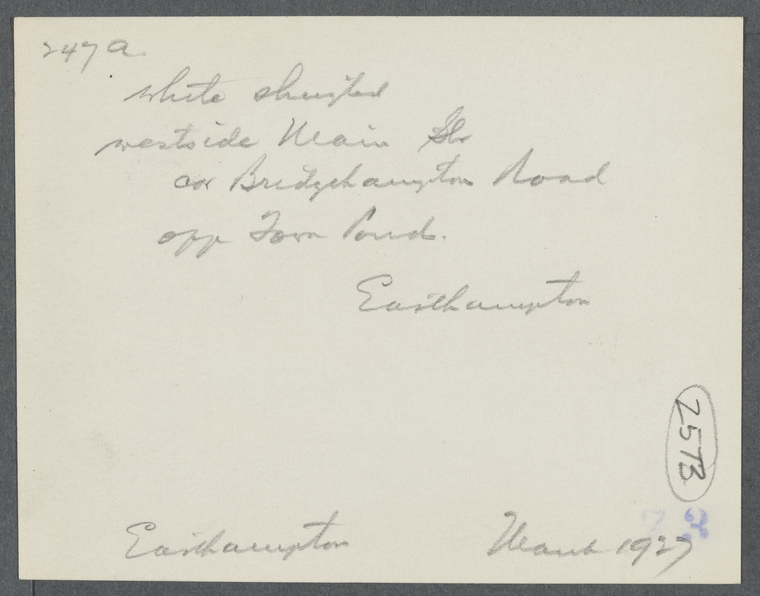 247a
white shingled
westside Main St.
cor Bridgehampton Road
opp Town Pond.
Easthampton
2573
Easthampton March 1927